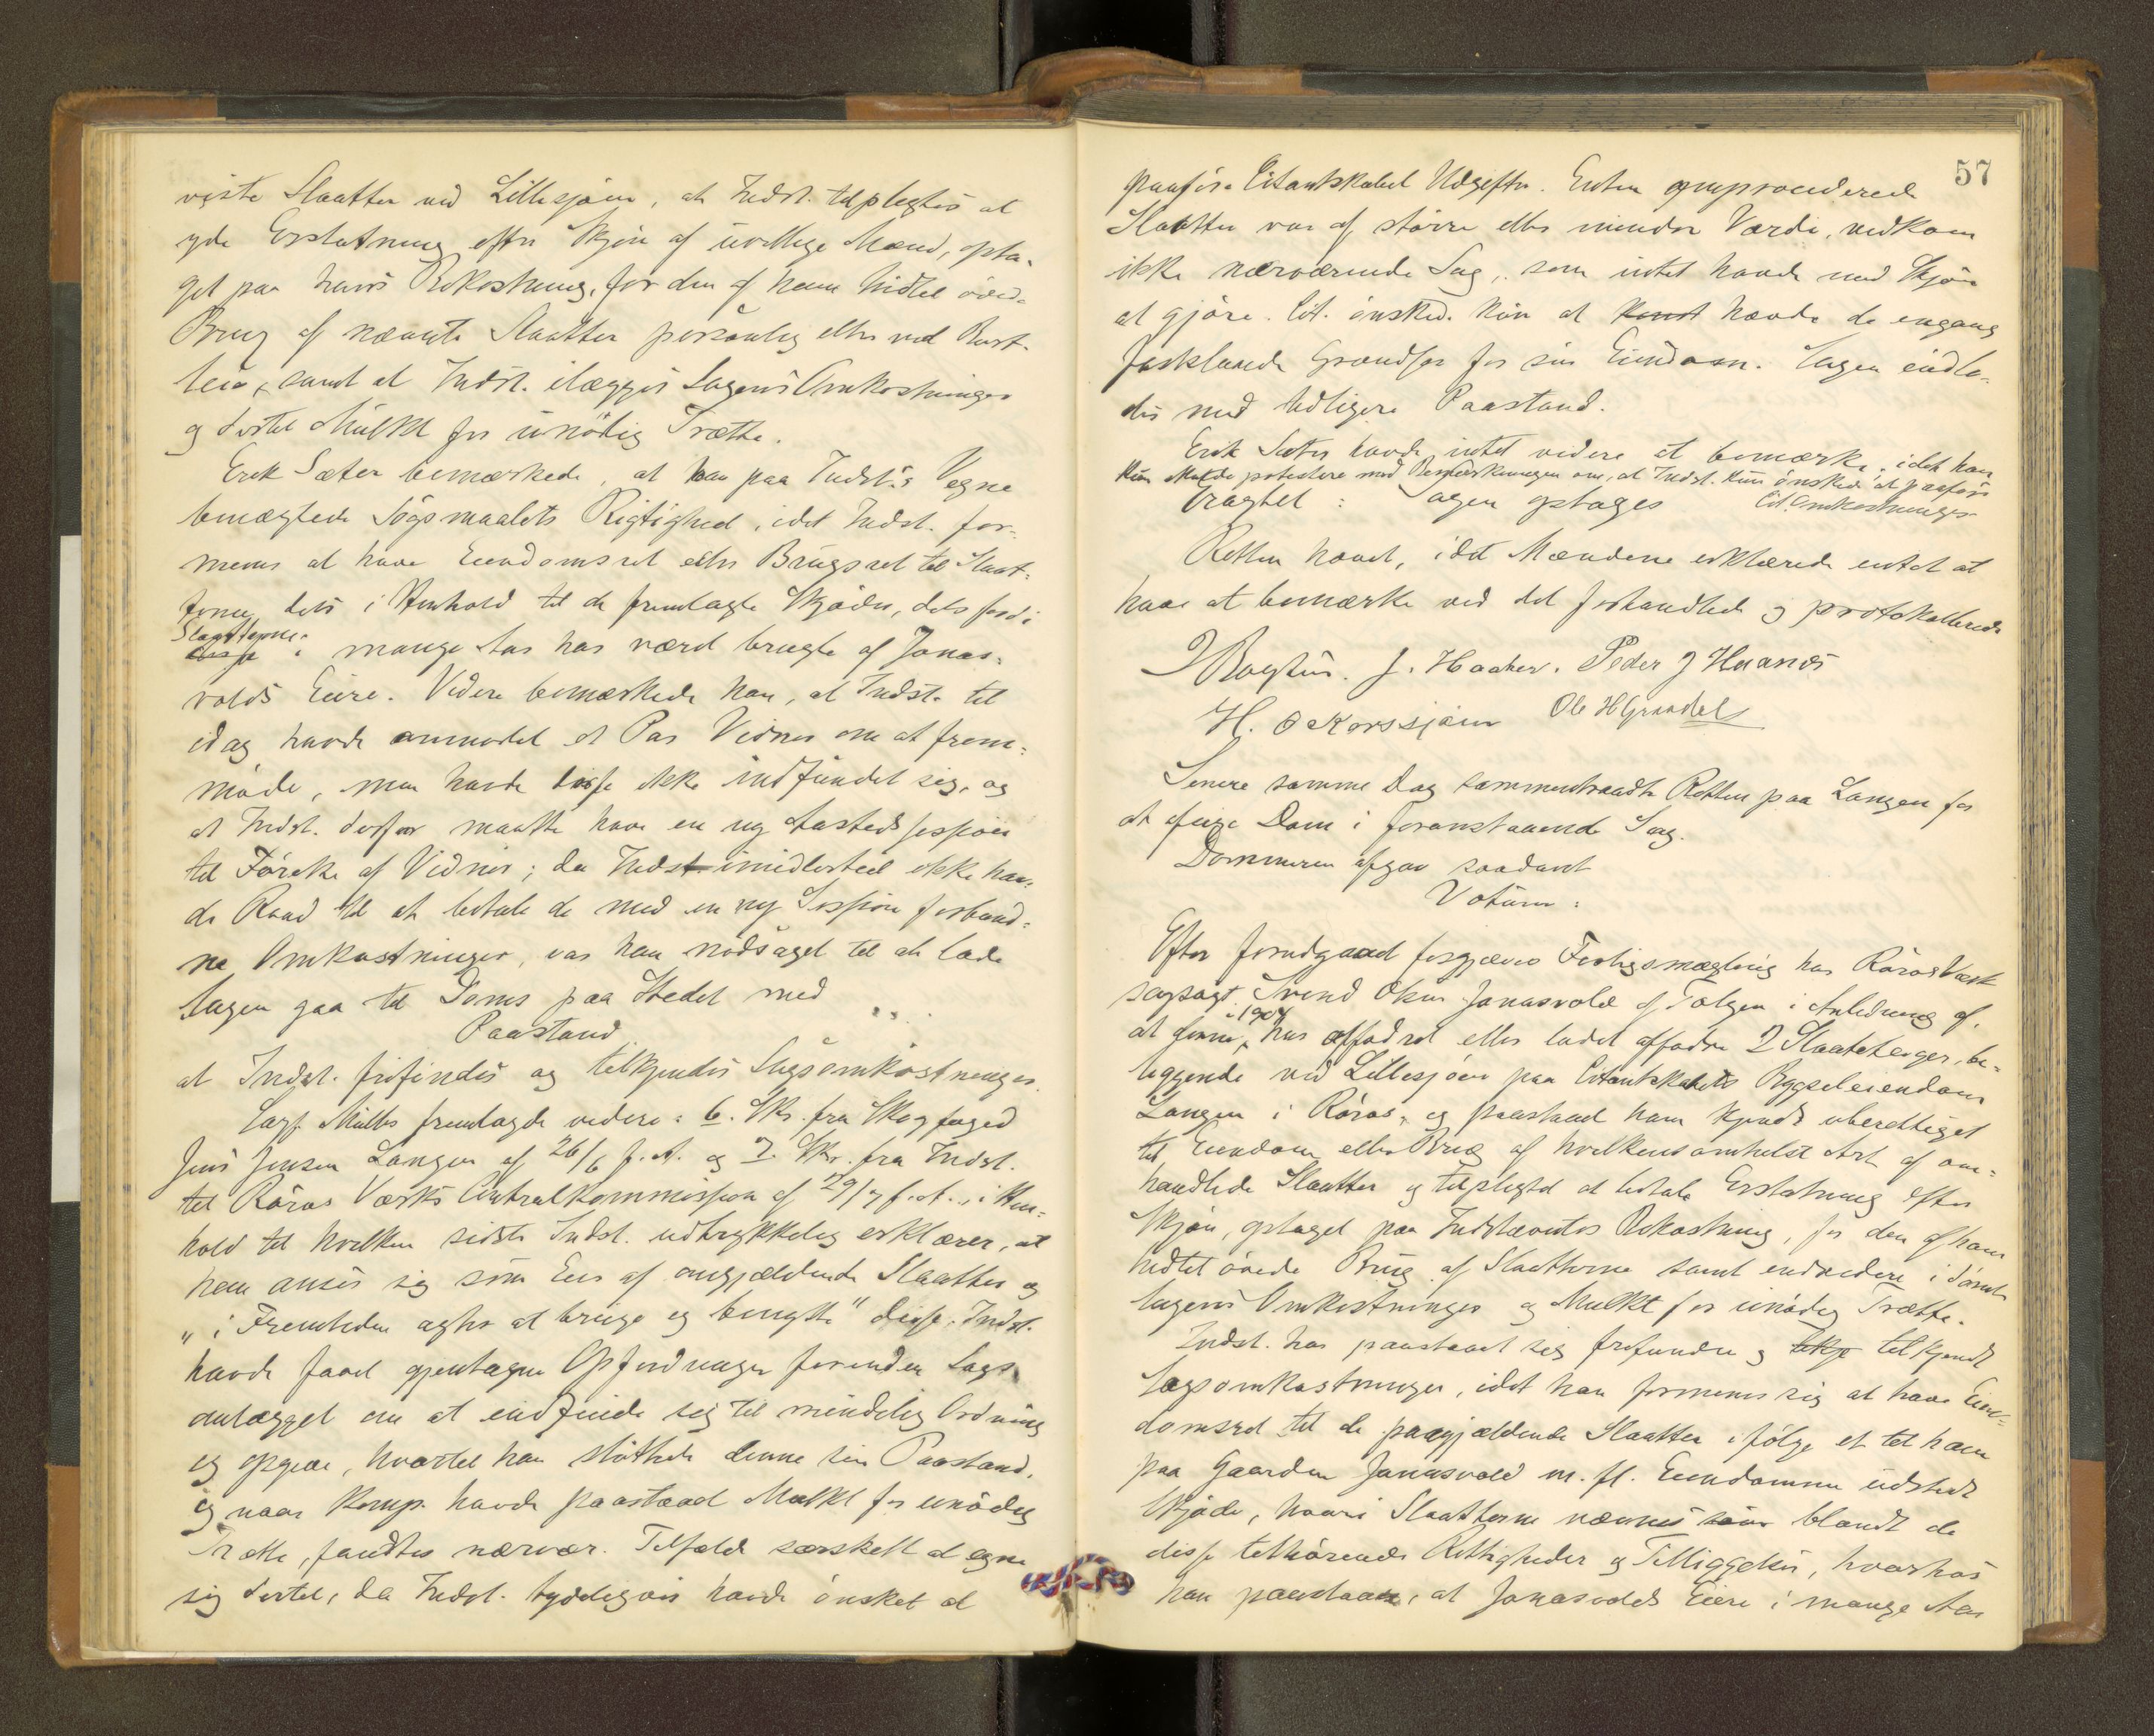 viste Slaatter ved Lillesjøen, at Indst. tilpligtes at
yde Erstatning efter Skjøn af uvillige Mænd, opta-
get paa hans Bekostning, for den af ham hidtil øvede
Brug af nævnte Slaatter personlig eller ved Bort-
leie, samt at Indst. ilægges Sagens Omkostninger
og dertil Mulkt for unødig Trætte.
Erik Sæter bemærkede, at han paa Indst.s Vegne
benægtede Søgsmaalets Rigtighed, idet Indst. for-
menes at have Eiendomsret eller Brugsret til Slaat-
terne, dels i Henhold til de fremlagte Skjøder, dels fordi
Slaatterne
disse i mange Aar har været brugte af Jonas-
volds Eiere. Videre bemærkede han, at Indst. til
idag havde anmodet et Par Vidner om at frem-
møde, men havde disse ikke indfundet sig, og
at Indst. derfor maatte have en ny Aastedssession
til Førelse af Vidner; da Indst. imidlertid ikke hav-
de Raad til at betale de med en ny Session forbund-
ne Omkostninger, var han nødsaget til at lade
Sagen gaa til Doms paa Stedet med
Paastand
at Indst. frifindes og tilkjendes Sagsomkostninger.
Sagf. Mülbs fremlagde videre: 6. Skr. fra Skogfoged
Jens Jensen Langen af 26/6 f. A. og 7. Skr. fra Indst.
til Røros Værks Centralkommission af 29/7 f. A., i Hen-
hold til hvilken sidste Indst. udtrykkelig erklærer, at
han anser sig som Eier af omgjældende Slaatter og
"i Fremtiden agter at bruge og benytte" disse. Indst.
havde faaet gjentagne Opfordringer forinden Sags-
anlægget om at indfinde sig til mindelig Ordning
og opgive, hvortil han støttede denne sin Paastand,
og naar Komp. havde paastaaet Mulkt for unødig
Trætte, fandtes nærvær. Tilfælde særskilt at egne
sig dertil, da Indst. tydeligvis havde ønsket at
57
paaføre Citantskabet Udgifter. Enten omprocederede
Slaatter var af større eller mindre Værdi, vedkom
ikke nærværende Sag, som intet havde med Skjøn
at gjøre. Cit. ønskede kun at hævde de engang
fastslaaede Grændser for sin Eiendom. Sagen indla-
des med tidligere Paastand.
Erik Sæter havde intet videre at bemærke, idet han
kun maatte protestere mod Bemærkningen om, at Indst. kun ønskede at paaføre
Cit. Omkostninger
Eragtet: Sagen optages
Retten hævet, idet Mændene erklærede intet at
have at bemærke ved det forhandlede og protokollerede
J. Haaker. Peder J Haanes
H. O Korssjøen Ole H Graadal
Senere samme Dag sammentraadte Retten paa Langen for
at afsige Dom i foranstaaende Sag.
Dommeren afgav saadant
Votum:
Efter forudgaaed forgjæves Forligsmægling har Røros Værk
sagsøgt Svend Olsen Jonasvold af Tolgen i Anledning af,
at denne i 1907 har affodret eller ladet affodre 2 Slaatteteiger, be-
liggende ved Lillesjøen paa Citantskabets Bygseleiendom
Langen i Røros, og paastaaet ham kjendt uberettiget
til Eiendom eller Brug af hvilkensomhelst Art af om-
handlede Slaatter og tilpligtet at betale Erstatning efter
Skjøn, optaget paa Indstævntes Bekostning, for den af ham
hidtil øvede Brug af Slaatterne samt endvidere idømt
Sagens Omkostninger og Mulkt for unødig Trætte.
Indst. har paastaaet sig frifunden og tilkjendt
Sagsomkostninger, idet han formener sig at have Eien-
domsret til de paagjældende Slaatter ifølge et til ham
paa Gaarden Jonasvold m. fl. Eiendomme udstedt
Skjøde, hvori Slaatterne nævnes blandt de
disse tilhørende Rettigheder og Tilliggelser, hvorhos
han paastaar, at Jonasvolds Eiere i mange Aar